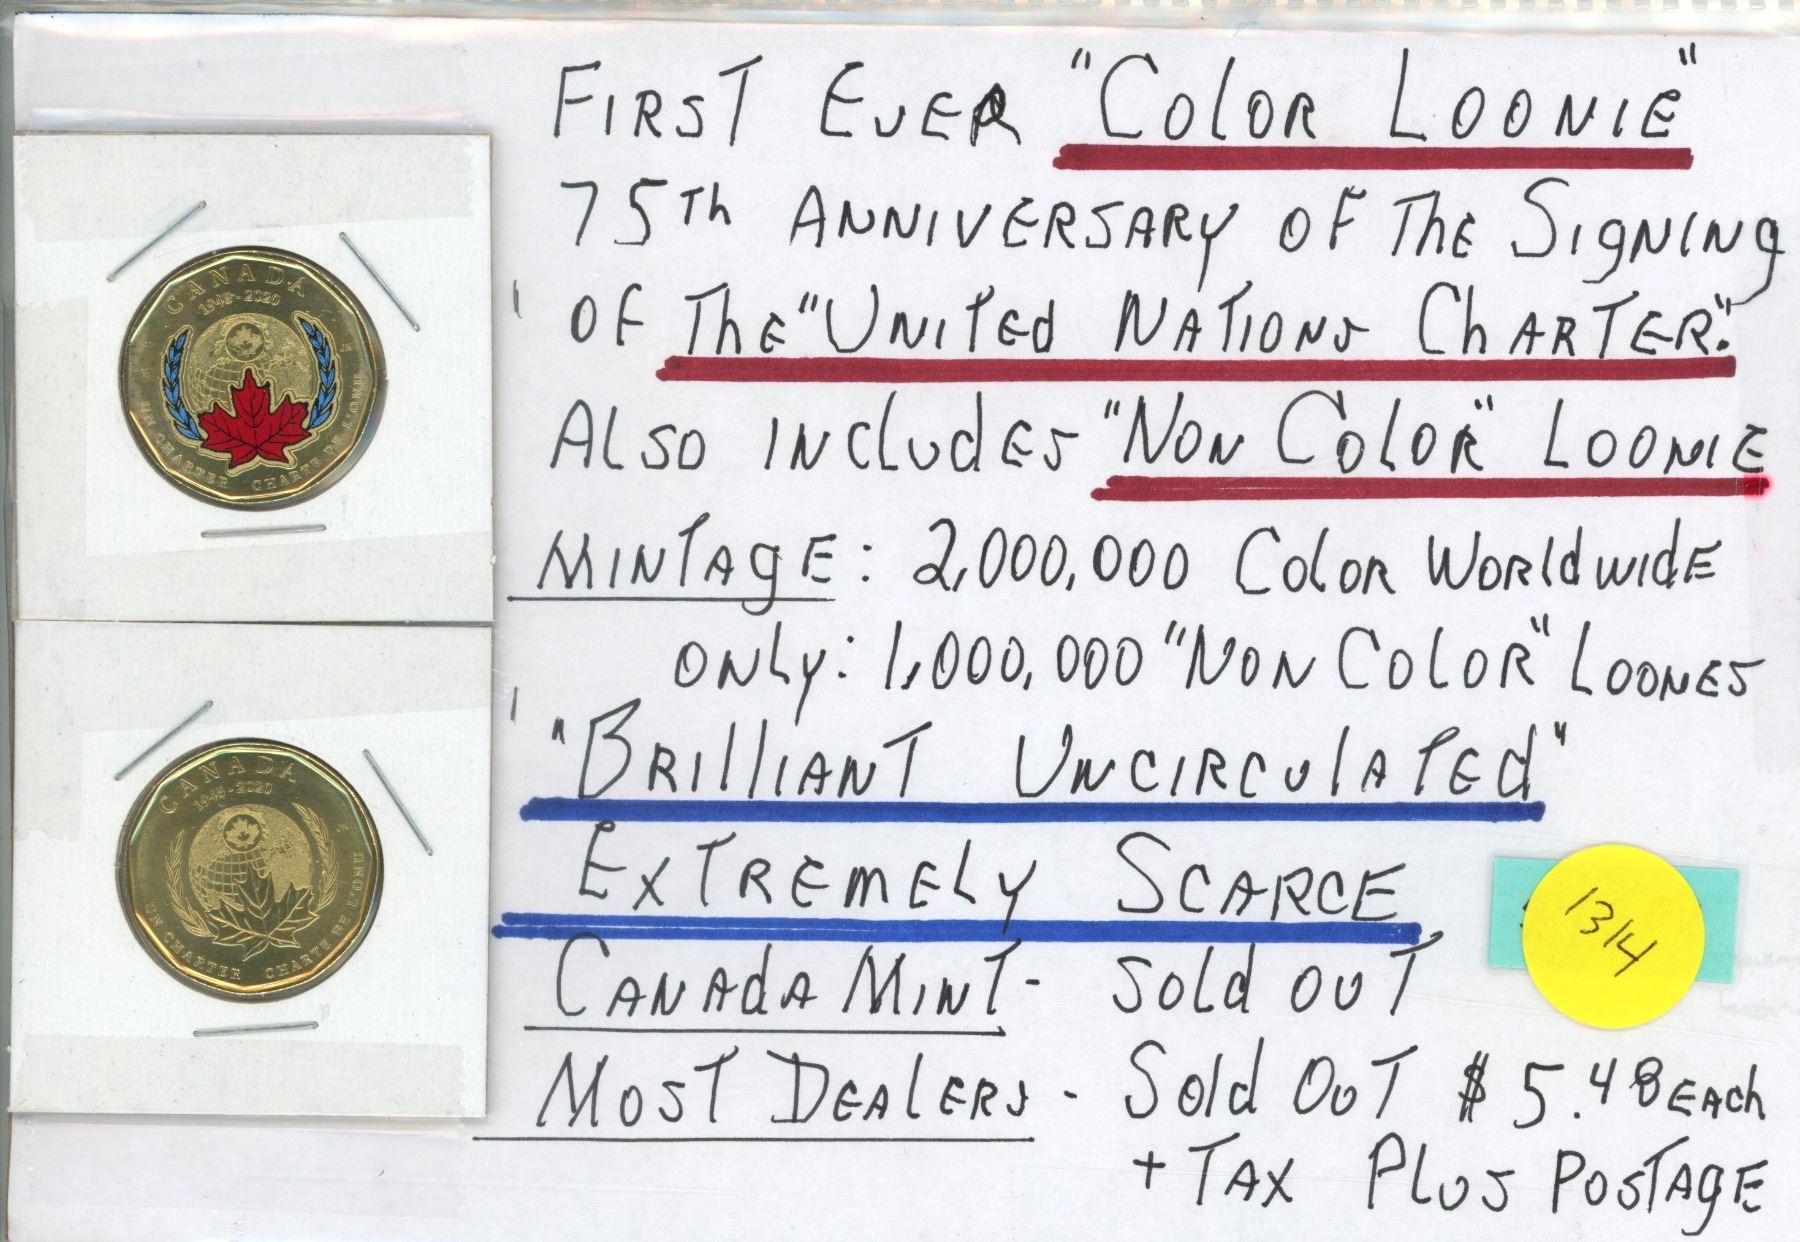 CANADA
1945-2020
JN
UN CHARTER CHARTE DE L'ONU
CANADA
1945-2020
JN
UN CHARTER CHARTE DE L'ONU
FIRST EVER "COLOR LOONIE"
75Th ANNIVERSARY OF THE SIGNING
OF THE "UNITED NATIONS CHARTER."
ALSO INCLUDES "NON COLOR" LOONIE
MINTAGE: 2,000,000 COLOR WORLDWIDE
ONLY: 1,000,000 "NON COLOR" LOONES
"BRILLIANT UNCIRCULATED"
EXTREMELY SCARCE
1314
CANADA MINT- SOLD OUT
MOST DEALERS - SOLD OUT $5.48 EACH
+ TAX PLUS POSTAGE